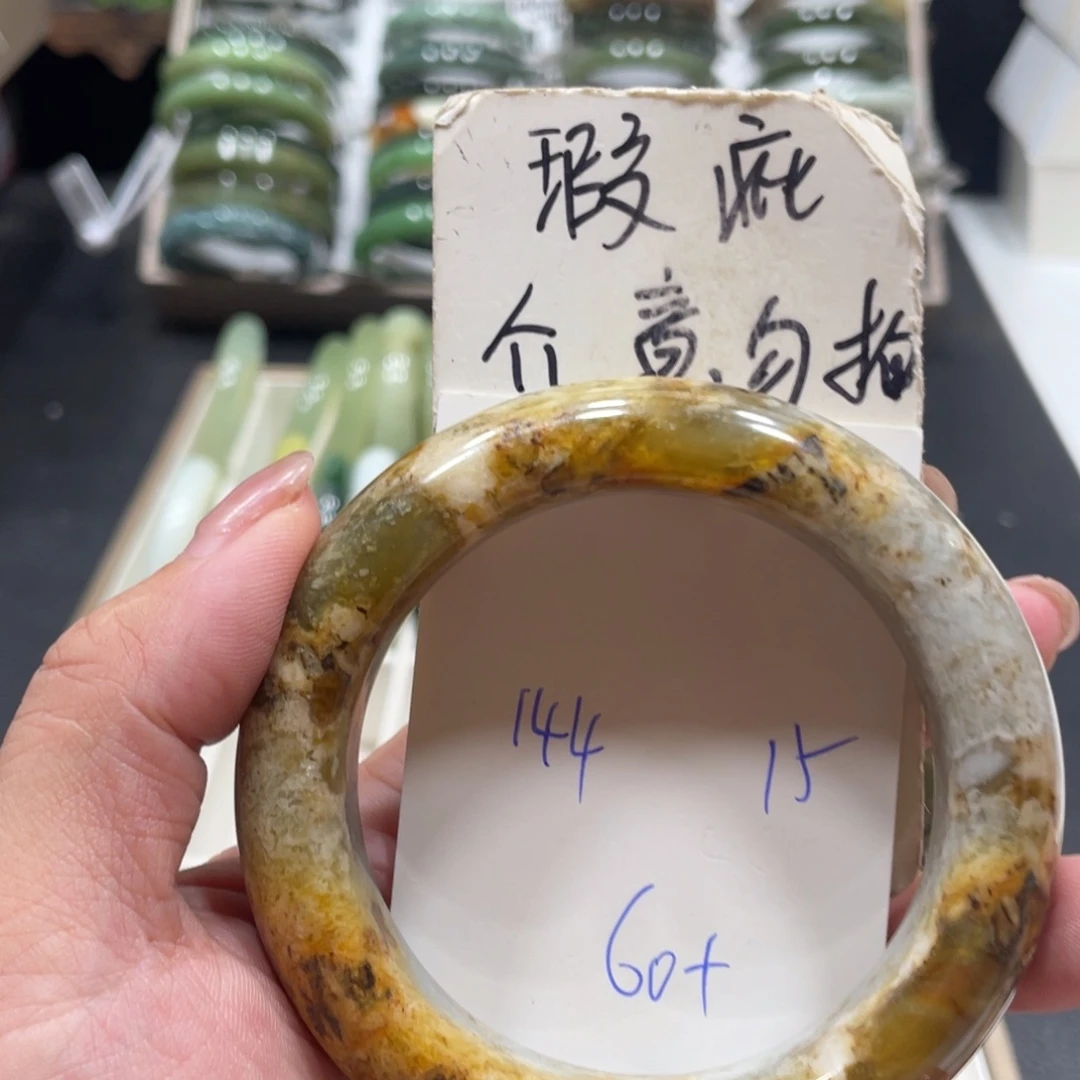 瑕疵
介意勿拍
144 15
60+